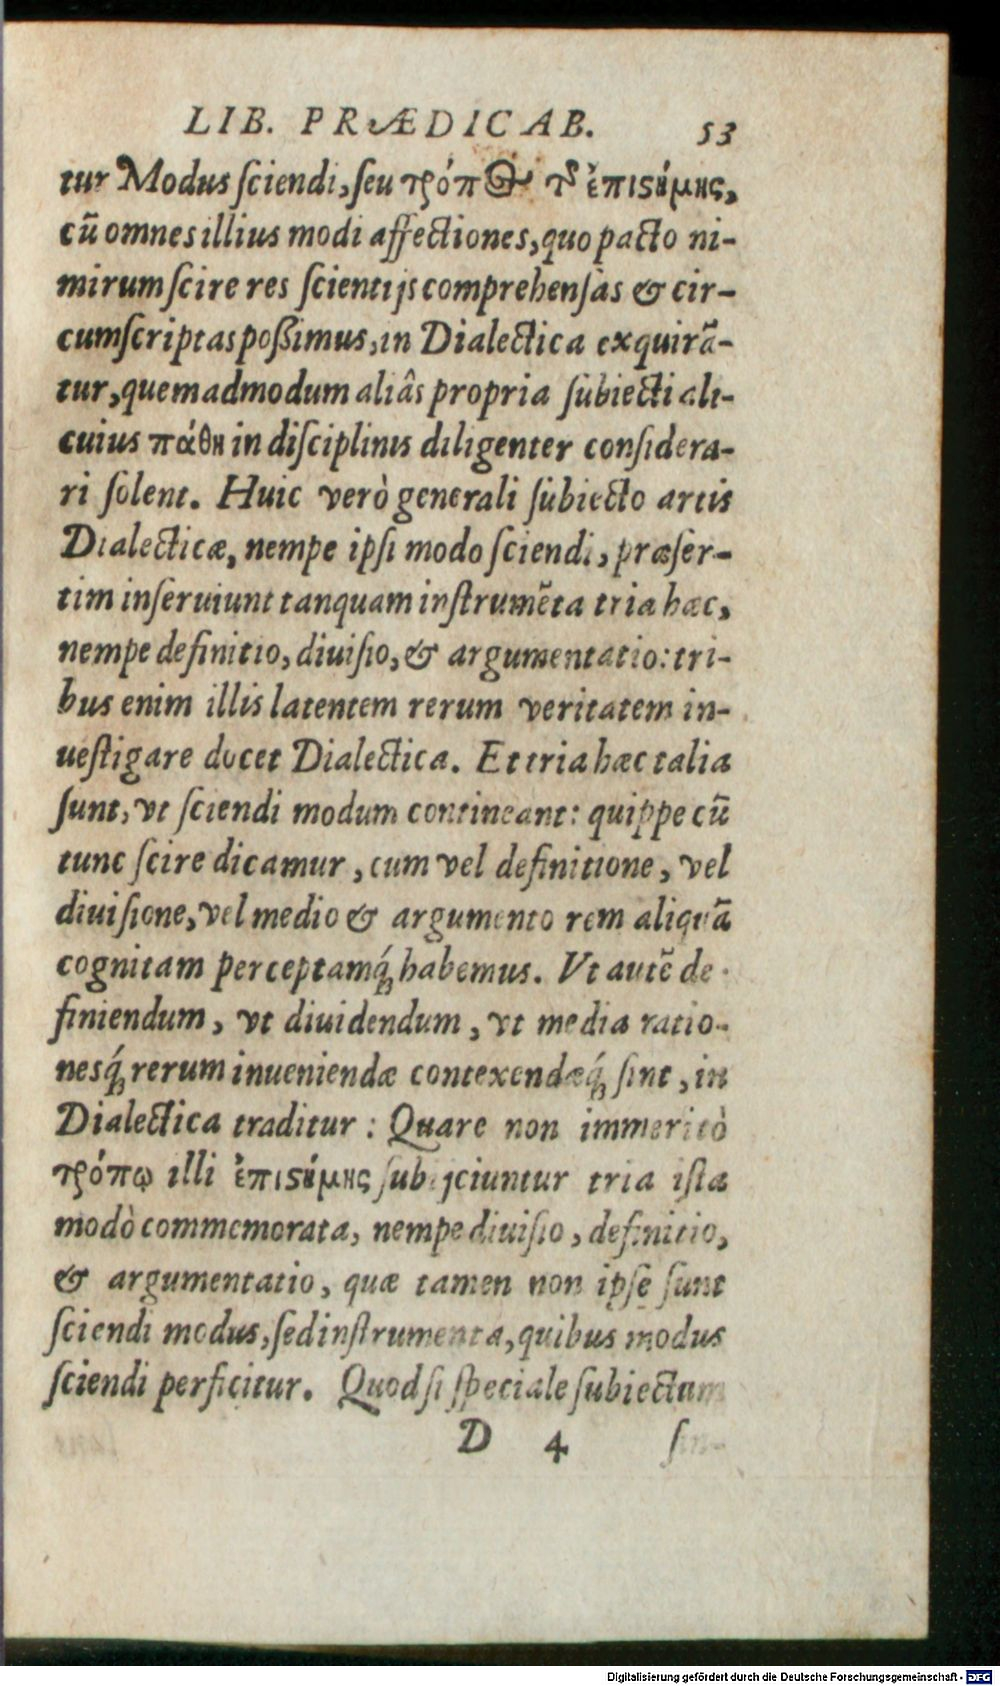 LIB. PRÆDICAB. 53
tur Modus ſciendi, ſeu τρόπος τ͂ ἐπιςήμης,
cū omnes illius modi affectiones, quo pacto ni-
mirum ſcire res ſcientijs comprehenſas & cir-
cumſcriptas poßimus, in Dialectica exquirā-
tur, quemadmodum aliâs propria ſubiecti ali-
cuius πάθη in diſciplinis diligenter conſidera-
ri ſolent. Huic verò generali ſubiecto artis
Dialecticæ, nempe ipſi modo ſciendi, præſer-
tim inſeruiunt tanquam inſtrumēta tria hæc,
nempe definitio, diuiſio, & argumentatio: tri-
bus enim illis latentem rerum veritatem in-
ueſtigare docet Dialectica. Et tria hæc talia
ſunt, vt ſciendi modum contineant: quippe cū
tunc ſcire dicamur, cum vel definitione, vel
diuiſione, vel medio & argumento rem aliquā
cognitam perceptamq́; habemus. Vt autē de-
finiendum, vt diuidendum, vt media ratio-
nesq́; rerum inueniendæ contexendæq́; ſint, in
Dialectica traditur: Quare non immeritò
τρόπῳ illi ἐπιςήμης ſubijciuntur tria iſta
modò commemorata, nempe diuiſio, definitio,
& argumentatio, quæ tamen non ipſe ſunt
ſciendi modus, ſed inſtrumenta, quibus modus
ſciendi perficitur. Quod ſi ſpeciale ſubiectum
D 4 ſin-
Digitalisierung gefördert durch die Deutsche Forschungsgemeinschaft - DFG